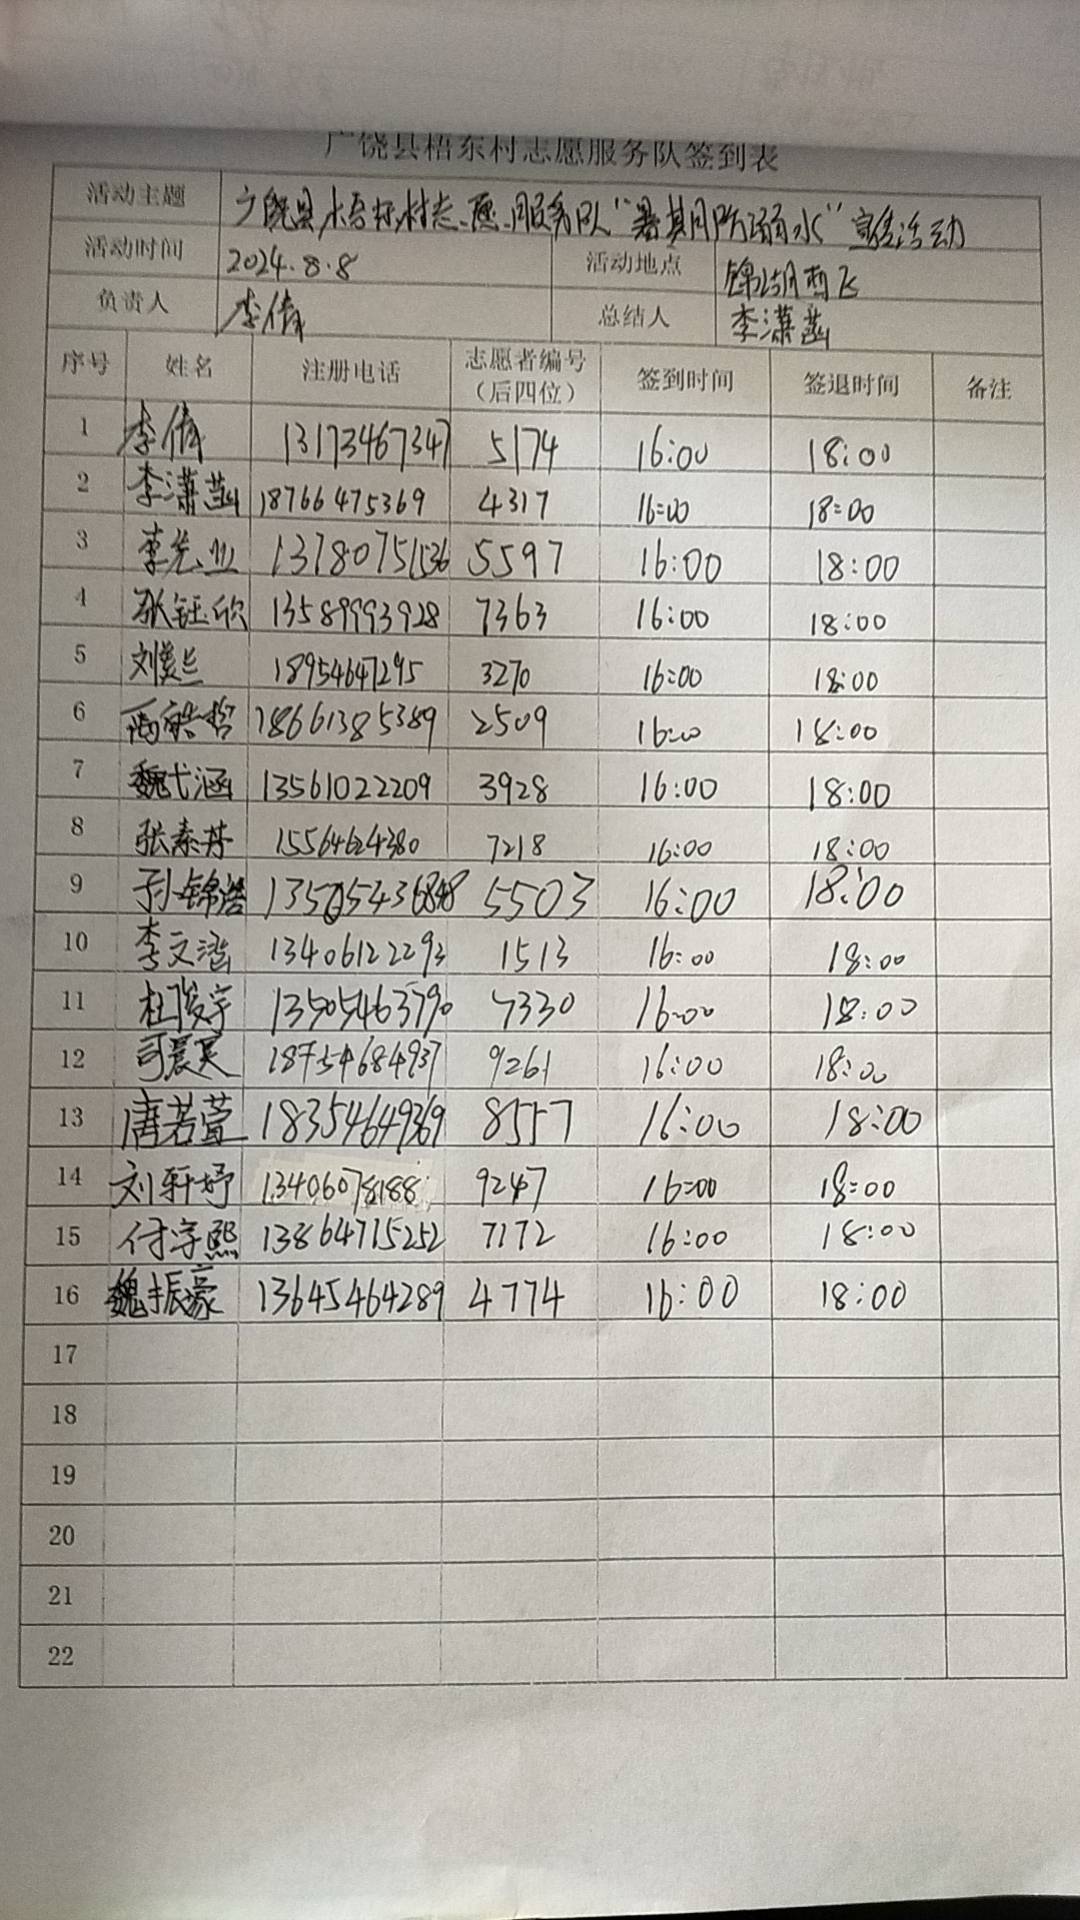 广饶县梧东村志愿服务队签到表
活动主题 广饶县梧东村志愿服务队“暑期防溺水”宣传活动
活动时间 2024.8.8 活动地点 锦湖西
负责人 李倩 总结人 李潇菡
序号 姓名 注册电话 志愿者编号（后四位） 签到时间 签退时间 备注
1 李倩 13173467347 5174 16:00 18:00
2 李潇菡 18766475369 4317 16:00 18:00
3 李光业 13780751536 5597 16:00 18:00
4 张钰欣 13589993928 7363 16:00 18:00
5 刘美兰 18954647295 3270 16:00 18:00
6 18661385389 2509 16:00 18:00
7 魏弋涵 13561022209 3928 16:00 18:00
8 张素芬 15564624380 7218 16:00 18:00
9 孙锦浩 5503 16:00 18:00
10 李文浩 13406122293 1513 16:00 18:00
11 杜俊宇 13505463790 7330 16:00 18:00
12 18754684937 9261 16:00 18:00
13 唐若萱 18354649369 8557 16:00 18:00
14 刘轩妤 13406078188 9247 16:00 18:00
15 付宇熙 13864715252 7172 16:00 18:00
16 魏振豪 13645464289 4774 16:00 18:00
17
18
19
20
21
22